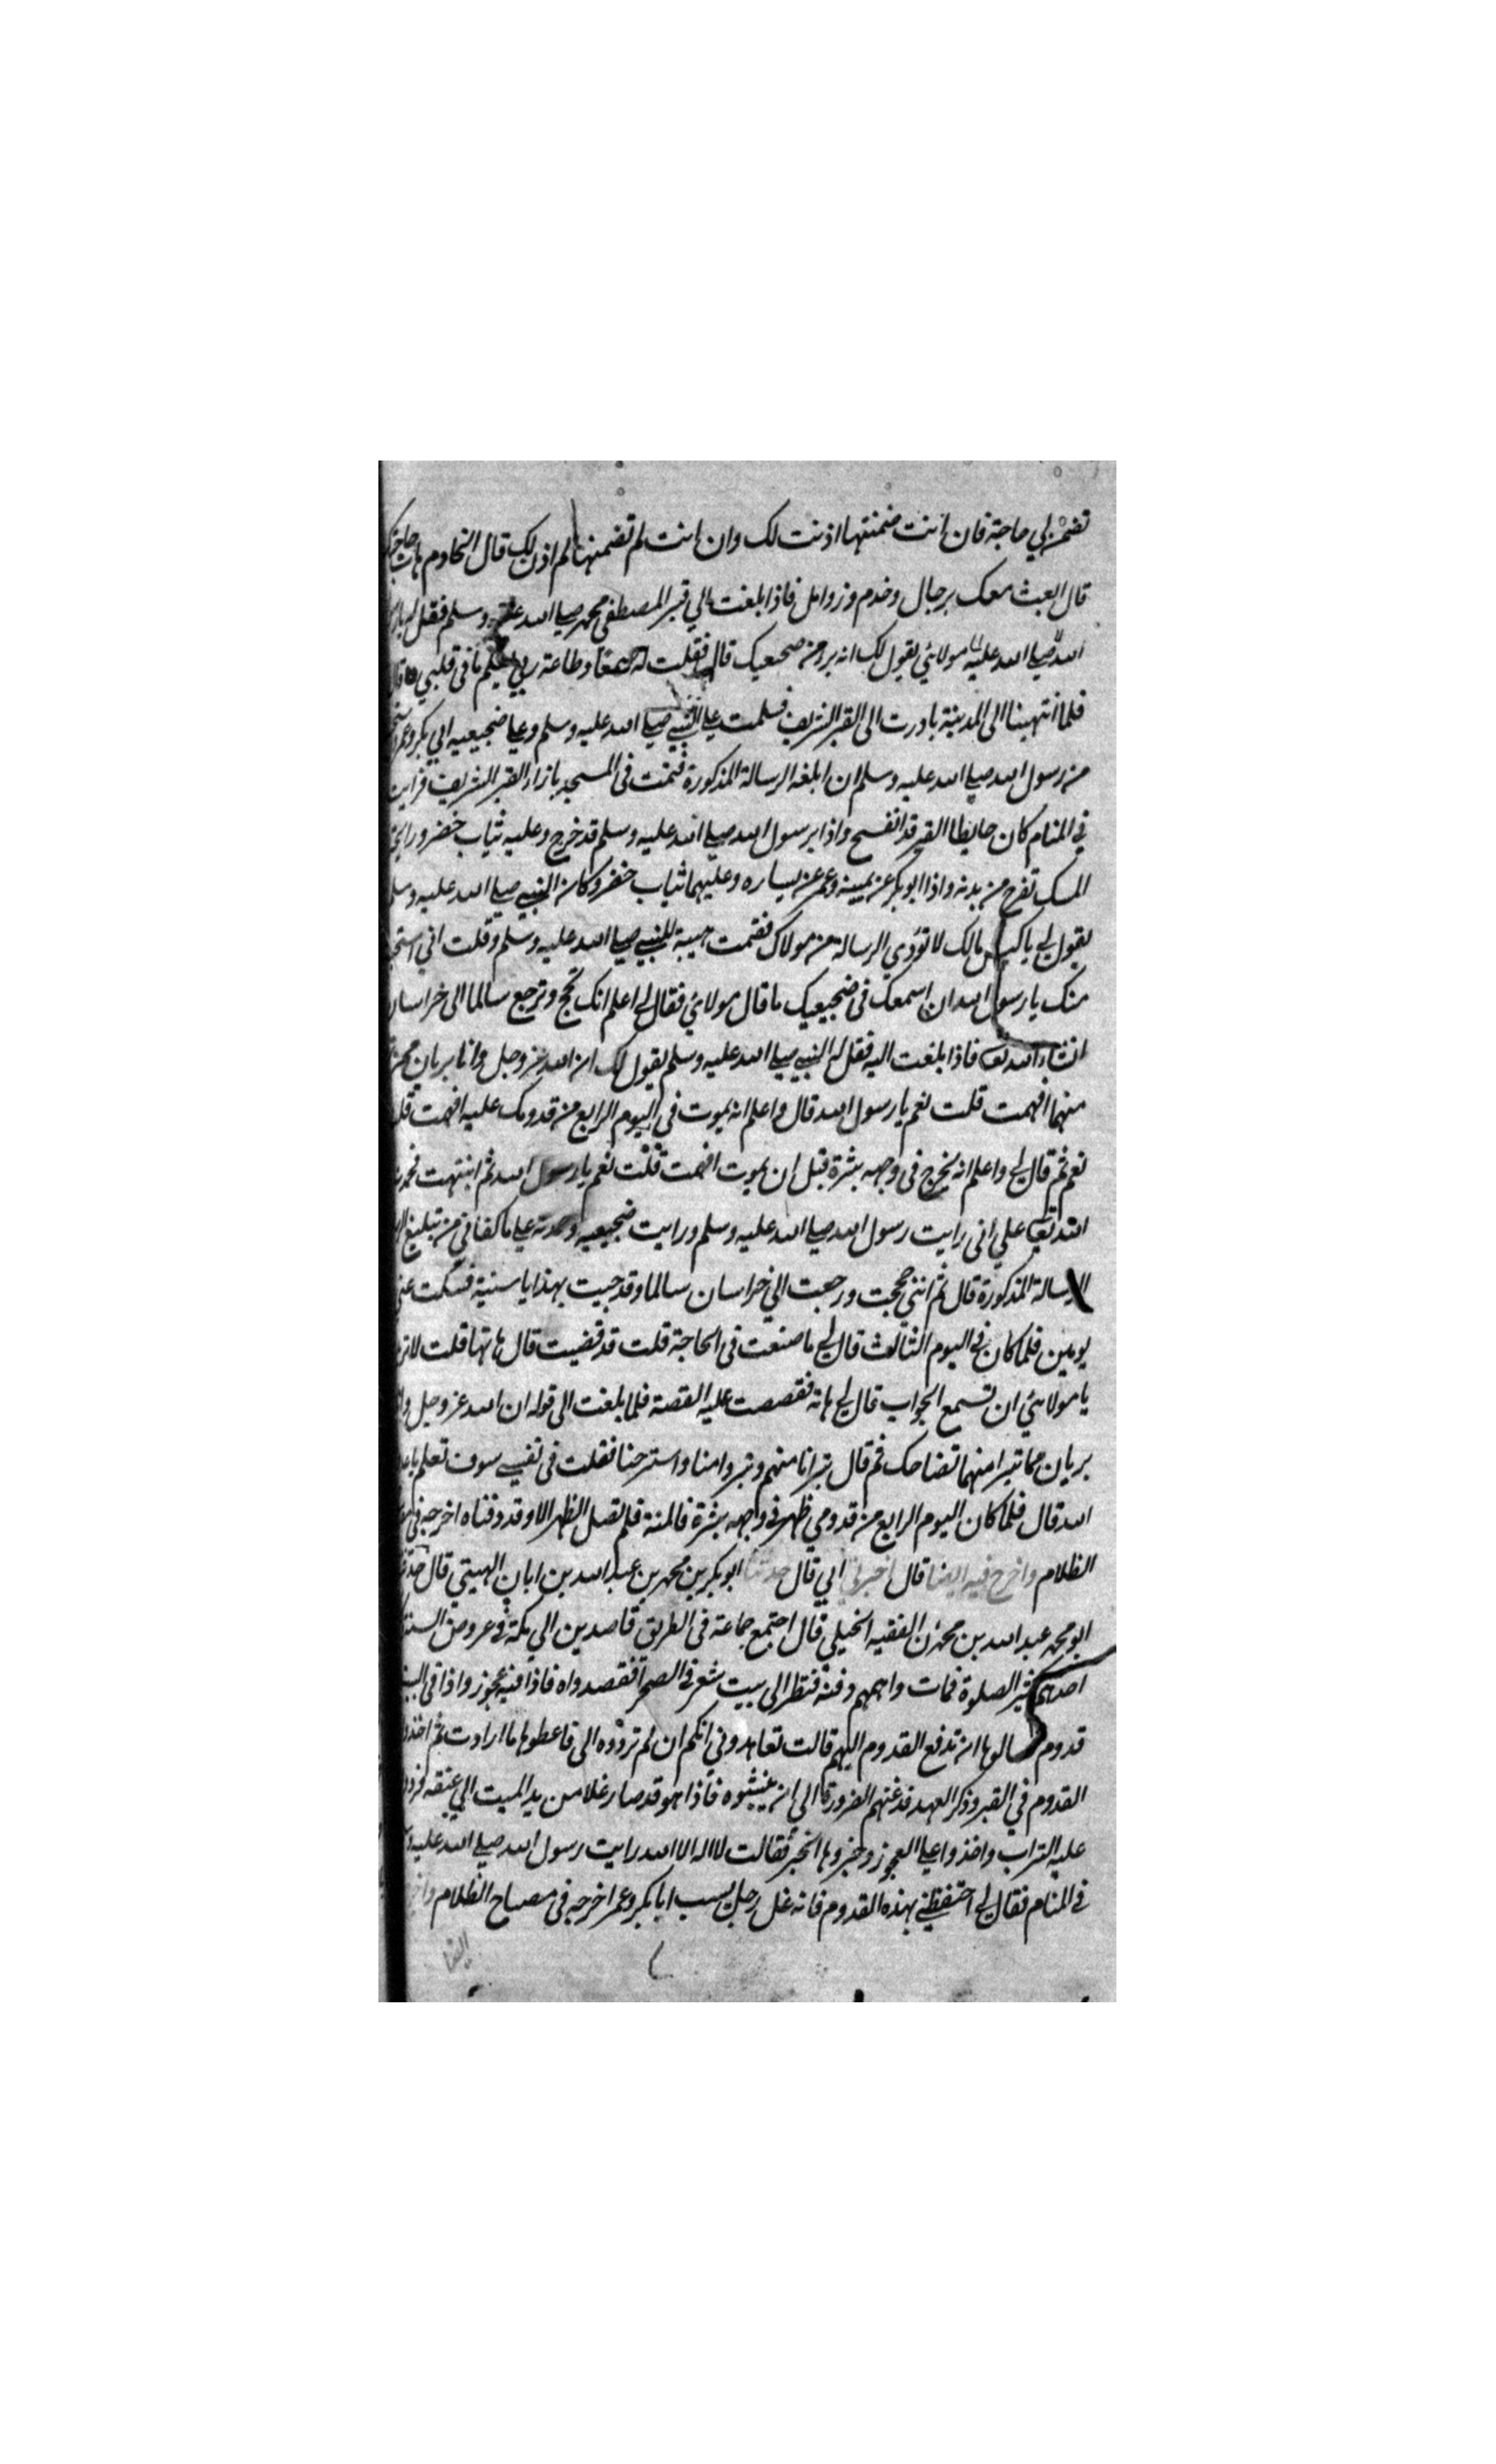 تضمن لي حاجة فان انت ضمنتها اذنت لك وان انت لم تضمنها لم اذن لك قال الخادم هات حاجتك
قال ابعث معك برجال وخدم وزوامل فاذا بلغت الي قبر المصطفى محمد صلي الله عليه وسلم فقل له يا رسول
الله صلي الله عليك مولائي يقول لك انه برئ من ضجيعيك قال فقلت له سمعا وطاعة ربي يعلم ما في قلبي قال
فلما انتهينا الى المدينة بادرت الى القبر الشريف فسلمت علي النبي صلي الله عليه وسلم وعلي ضجيعيه ابي بكر وعمر
من رسول الله صلي الله عليه وسلم ان ابلغه الرسالة المذكورة فنمت في المسجد بازاء القبر الشريف فرايت
في المنام كان حايط القبر قد انفسح واذا برسول الله صلي الله عليه وسلم قد خرج وعليه ثياب خضر ورايحة
المسك تفوح من بدنه واذا ابو بكر عن يمينه وعمر عن يساره وعليهما ثياب خضر وكان النبي صلي الله عليه وسلم
يقول لي يا كيس مالك لا تؤدي الرسالة من مولاك فقمت هيبة للنبي صلي الله عليه وسلم وقلت اني استحي
منك يا رسول الله ان اسمعك في ضجيعيك ما قال مولائي فقال لي اعلم انك تحج وترجع سالما الى خراسان
انشاء الله تعا فاذا بلغت اليه فقل له النبي صلي الله عليه وسلم يقول لك ان الله عز وجل وانا بريان ممن
منهما افهمت قلت نعم يا رسول الله قال واعلم انه يموت في اليوم الرابع من قدومك عليه افهمت قلت
نعم ثم قال لي واعلم انه يخرج في وجهه بثرة قبل ان يموت افهمت قلت نعم يا رسول الله ثم انتبهت فحمدت
الله تعا علي اني رايت رسول الله صلي الله عليه وسلم ورايت ضجيعيه وحمدته علي ما كفاني من تبليغ
الرسالة المذكورة قال ثم انني حججت ورجعت الي خراسان سالما وقد جيت بهدايا سنية فسكت عني
يومين فلما كان في اليوم الثالث قال لي ما صنعت في الحاجة قلت قد قضيت قال هاتها قلت لا تريد
يا مولائي ان تسمع الجواب قال لي هاته فقصصت عليه القصة فلما بلغت الى قوله ان الله عز وجل وانا
بريان مما تبرا منهما تضاحك ثم قال تبرانا منهم وتبروا منا واسترحنا فقلت في نفسي سوف تعلم يا عدو
الله قال فلما كان اليوم الرابع من قدومي ظهر في وجهه بثرة فالمته فلم نصل الظهر الا وقد دفناه اخرجه في مصباح
الظلام واخرج فيه ايضا قال اخبرني ابي قال حدثنا ابو بكر بن محمد بن عبد الله بن ابان الهيتي قال حدثنا
ابو محمد عبد الله بن محمد الفقيه الحنبلي قال اجتمع جماعة في الطريق قاصدين الي مكة في عروض السنة
احدهم كثير الصلوة فمات واهمهم دفنه فنظر الى بيت شعر في الصحرا فقصدواه فاذا فيه عجوز واذا في البيت
قدوم سالوها ان تدفع القدوم اليهم قالت تعاهدوني انكم ان لم تردوه الي فاعطوها ما ارادت ثم اخذوا
القدوم في القبر وذكر العهد فدعتهم الضرورة الى ان ينبشوه فاذا هو قد صار غلا من يد الميت الي عنقه فردوا
عليه التراب واخذوا علي العجوز وخبروها الخبر فقالت لا اله الا الله رايت رسول الله صلي الله عليه وسلم
في المنام فقال لي احتفظي بهذه القدوم فانه غل رجل يسب ابا بكر وعمر اخرجه في مصباح الظلام
ايضا